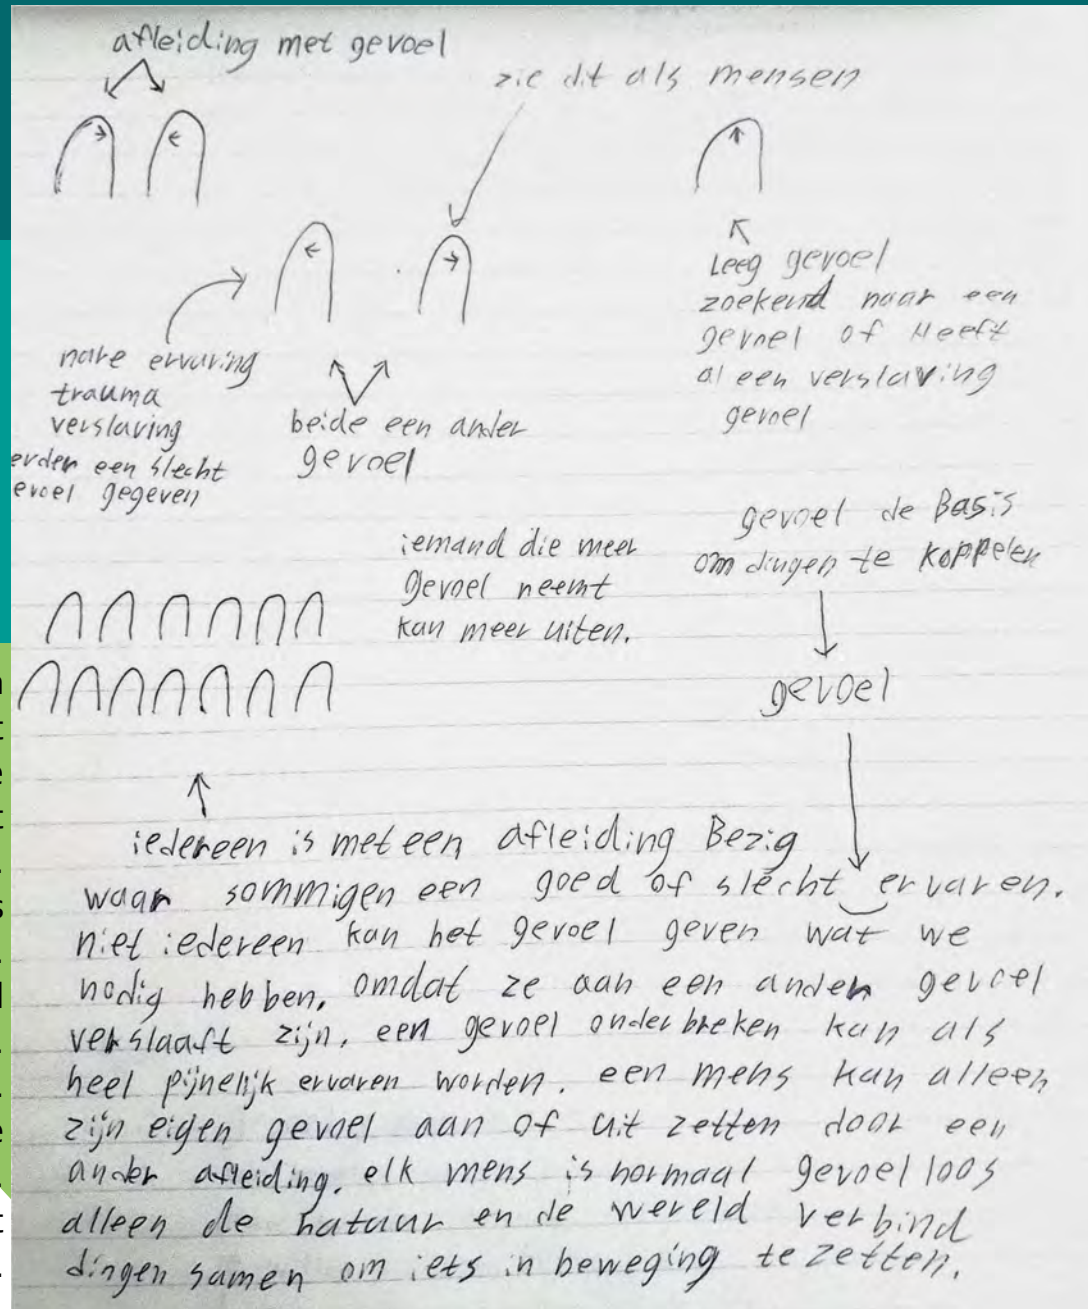 afleiding met gevoel
zie dit als mensen
Leeg gevoel
zoekend naar een
gevoel of Heeft
al een verslaving
gevoel
nare ervaring
trauma
verslaving
erder een slecht
evoel gegeven
beide een ander
gevoel
iemand die meer
gevoel neemt
kan meer uiten.
gevoel de Basis
om dingen te koppelen
gevoel
iedereen is met een afleiding Bezig
waar sommigen een goed of slecht ervaren.
niet iedereen kan het gevoel geven wat we
nodig hebben, omdat ze aan een ander gevoel
verslaaft zijn. een gevoel onderbreken kan als
heel pijnelijk ervaren worden. een mens kan alleen
zijn eigen gevoel aan of uit zetten door een
ander afleiding. elk mens is normaal gevoelloos
alleen de natuur en de wereld verbind
dingen samen om iets in beweging te zetten.